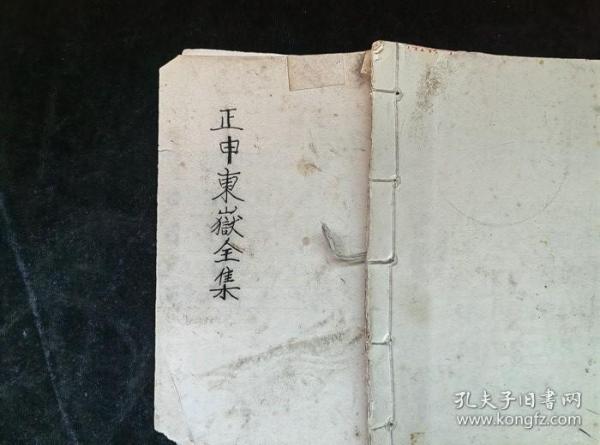 正申東嶽全集
孔夫子旧书网
www.kongfz.com